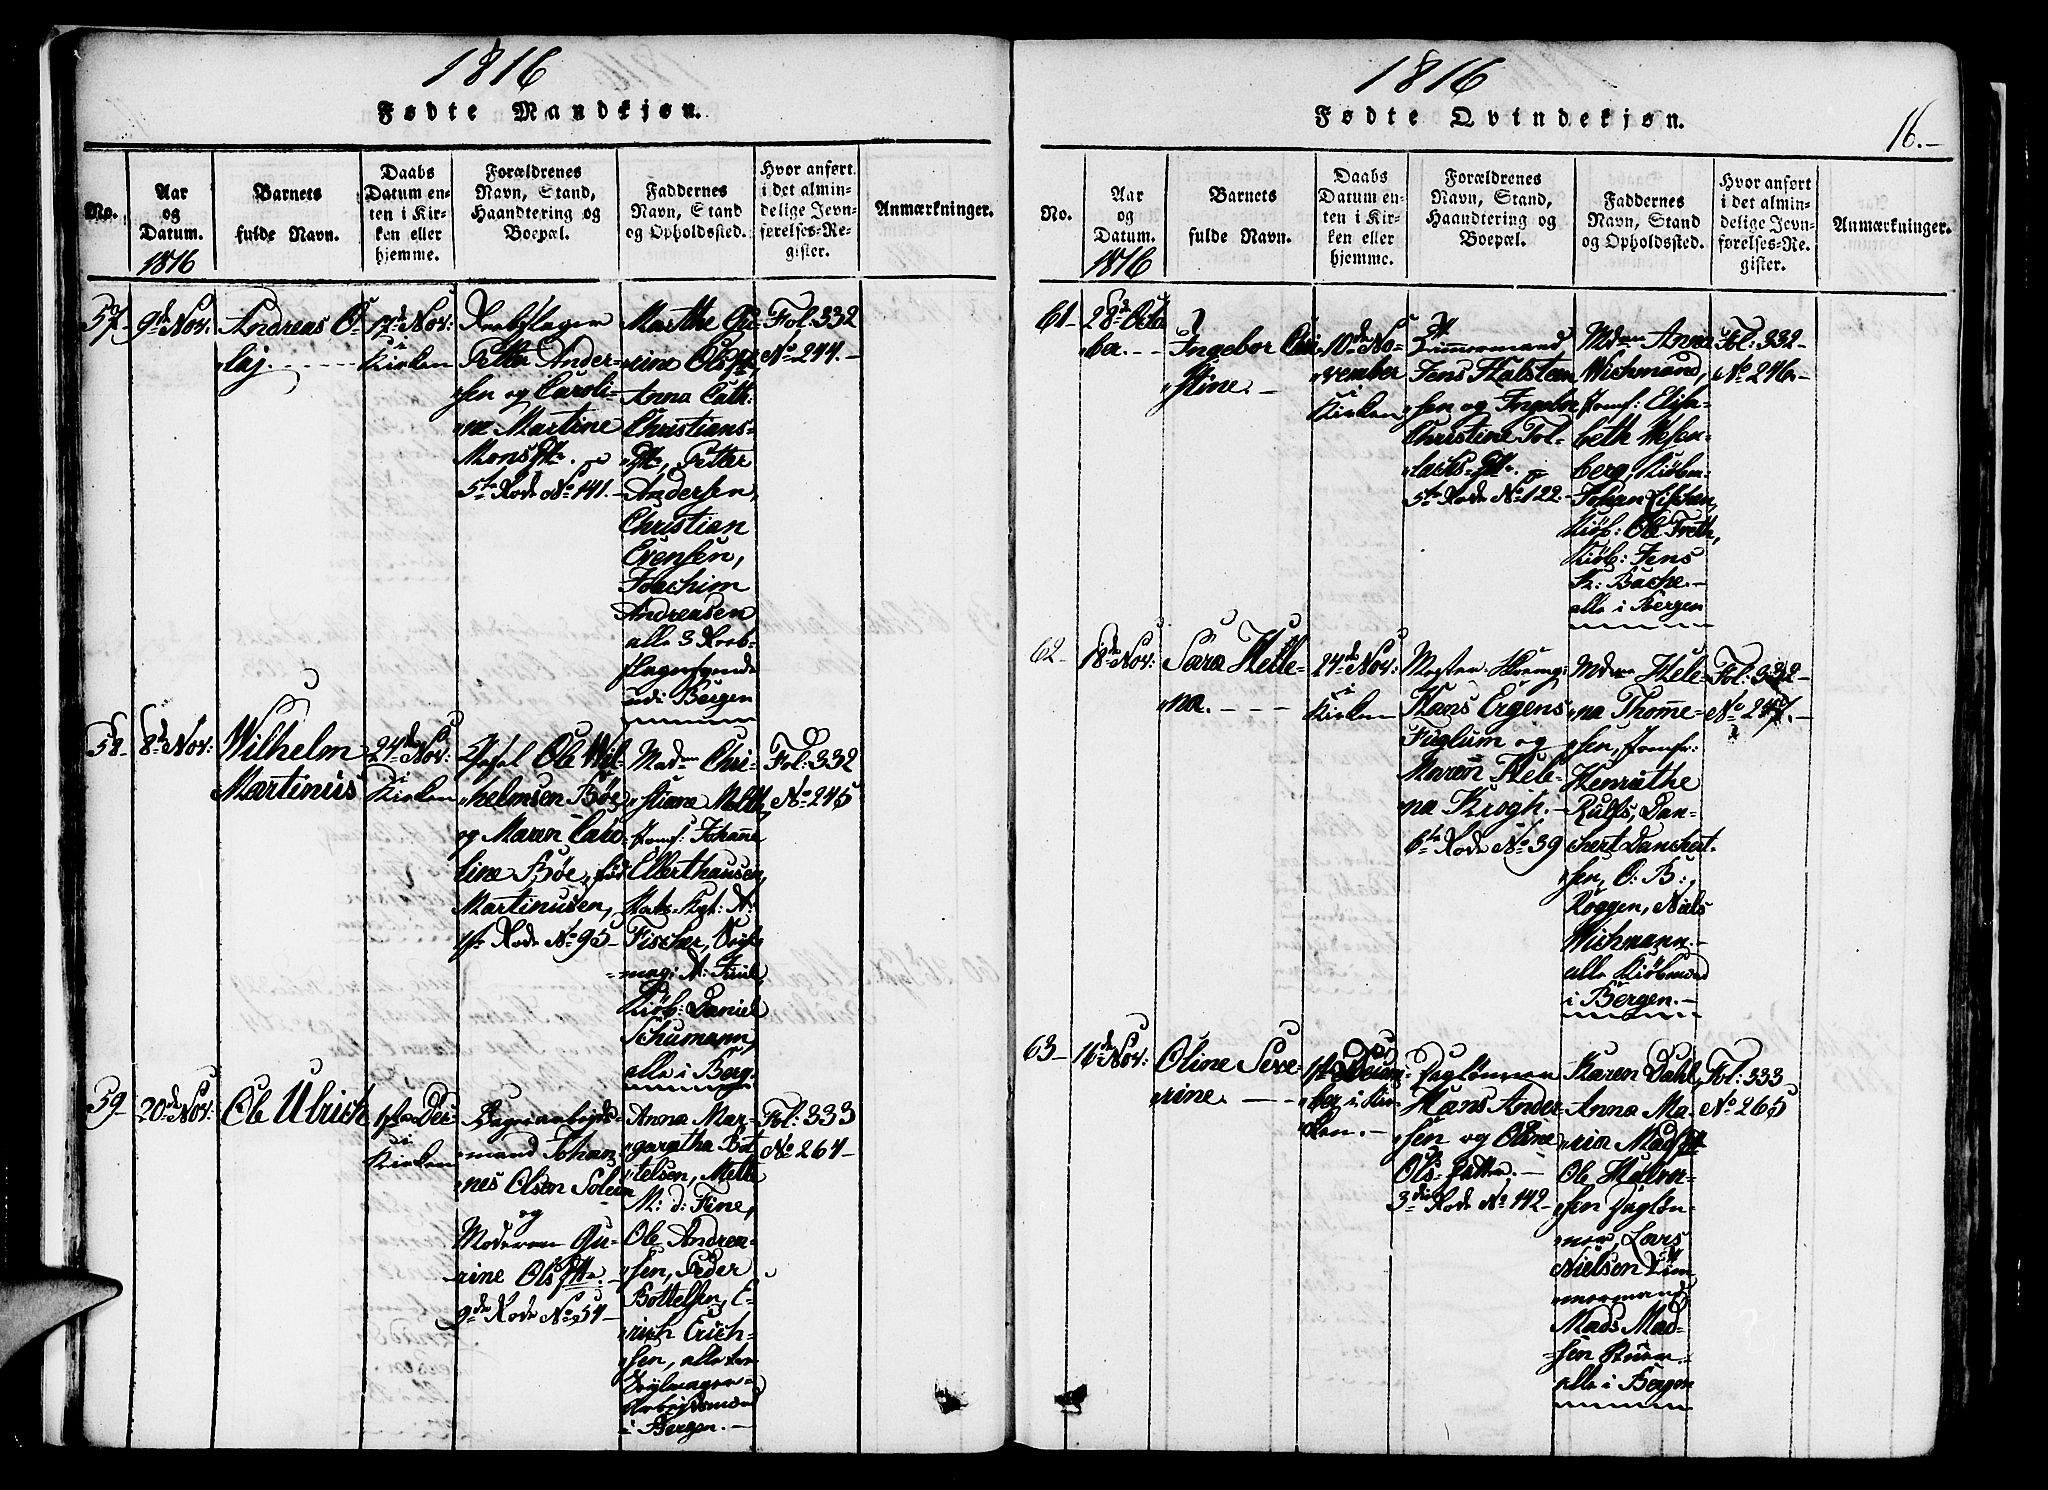 1816
Fødte Mandkjøn.
No.
Aar
og
Datum.
1816
Barnets
fulde Navn.
Daabs
Datum en-
ten i Kir-
ken eller
hjemme.
Forældrenes
Navn, Stand,
Haandtering og
Boepæl.
Faddernes
Navn, Stand
og Opholdssted.
Hvor anført
i det almin-
delige Jevn-
førelses-Re-
gister.
Anmærkninger.
57
9de Nov:
Andreas O-
laj.
17de Nov:
i
Kirken
Petter Ander-
sen og Caroli-
ne Martine
Mons Dtr.
5te Rode No 141.
Marthe Ca-
rine Ols Dtr,
Anna Cath:
Christians-
Dtr, Petter
Andersen,
Christian
Evensen,
Joachim
Andreasen
alle 3
udi Bergen
Fol: 332
No 244.
58.
8de Nov:
Wilhelm
Martinus
24de Nov:
i
Kirken
Ole Wil-
helmsen Bøe
og Maren Caro-
line Bøe, fød
Martinusen,
1ste Rode No 95
Madm Chri-
stiane Meltz,
Jomf: Johanne
Ellerthausen,
Fischer,
Kiøb: Daniel
Schumann,
alle i Berg:
Fol: 332
No 245
59
20de Nov:
Ole Ulrich
1ste Dec
i
Kirken
mand Johan-
nes Olsen Solem
og
Moderen Gu-
rine Ols Dtr.
9de Rode No 54
Anna Mar-
garetha Bot-
telsen, Mette
M: d: Fine,
Ole Andrea-
sen, Peder
Bottelsen, E-
rich Erich-
sen, alle
Arbeidsmænd
i Bergen.
Fol: 333
No 264
1816
Fødte Qvindekjøn.
16.
No.
Aar
og
Datum.
1816
Barnets
fulde Navn.
Daabs
Datum en-
ten i Kir-
ken eller
hjemme.
Forældrenes
Navn, Stand,
Haandtering og
Boepæl.
Faddernes
Navn, Stand
og Opholdssted.
Hvor anført
i det almin-
delige Jevn-
førelses-Re-
gister.
Anmærkninger.
61
28de Octo
ber.
Ingebor Chri-
stine.
10de No-
vember
i
Kirken
Zimmermand
Jens Halsteen-
sen og Ingebor
Christine Tol-
lachs Dtr.
5te Rode No 122.
Mdm Anna
Wichmand,
Jomf: Elisa-
beth Wesen-
berg, Kiøbm:
Johan
Kiøb: Ole Freth,
Kiøb: Jens
K: Bache.
alle i Bergen
Fol: 332
No 246
62
18de Nov:
Sara Helle-
na.
24de Nov:
i
Kirken
Hans Ergens
Fuglum og
Maren Hele-
na Krogh.
6te Rode No 39
Mdm Hele-
na Thome-
sen, Jomfr:
Henrathe
Rulfs, Dan-
chert Danchert-
sen, O: B:
Roggen, Niels
Wichmann.
alle Kiøbmænd
i Bergen.
Fol: 332
No 247.
63
16de Nov:
Oline Seve-
rine.
1ste Decem-
ber i Kir-
ken.
Dagløn̄er
Hans Ander-
sen og Oline
Ols Datter.
3die Rode No 142
Karen Dahl,
Anna Ma-
ria Mads Dtr
Ole Halvor-
sen Dagløn-
ner, Lars
Nielsen Zim-
mermand
Mads Mad-
sen
alle i Bergen
Fol: 333
No 265